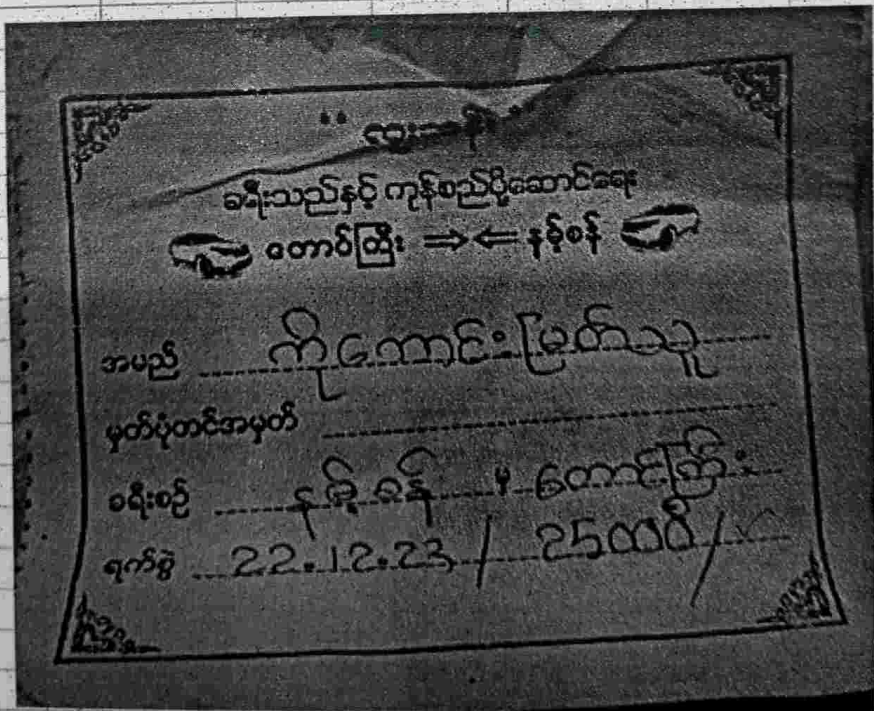 ခရီးသည်နှင့် ကုန်စည်ပို့ဆောင်ရေး
တောင်ကြီး ⇒⇐ နမ့်စန်
အမည် ကိုကောင်းမြတ်သူ
မှတ်ပုံတင်အမှတ်
ခရီးစဉ် နမ့်စန် မှ တောင်ကြီး
ရက်စွဲ 22.12.23 /